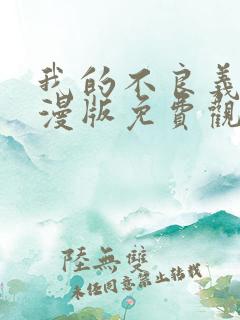 我的不良義
漫版免費觀
陸無雙
未经同意禁止转载